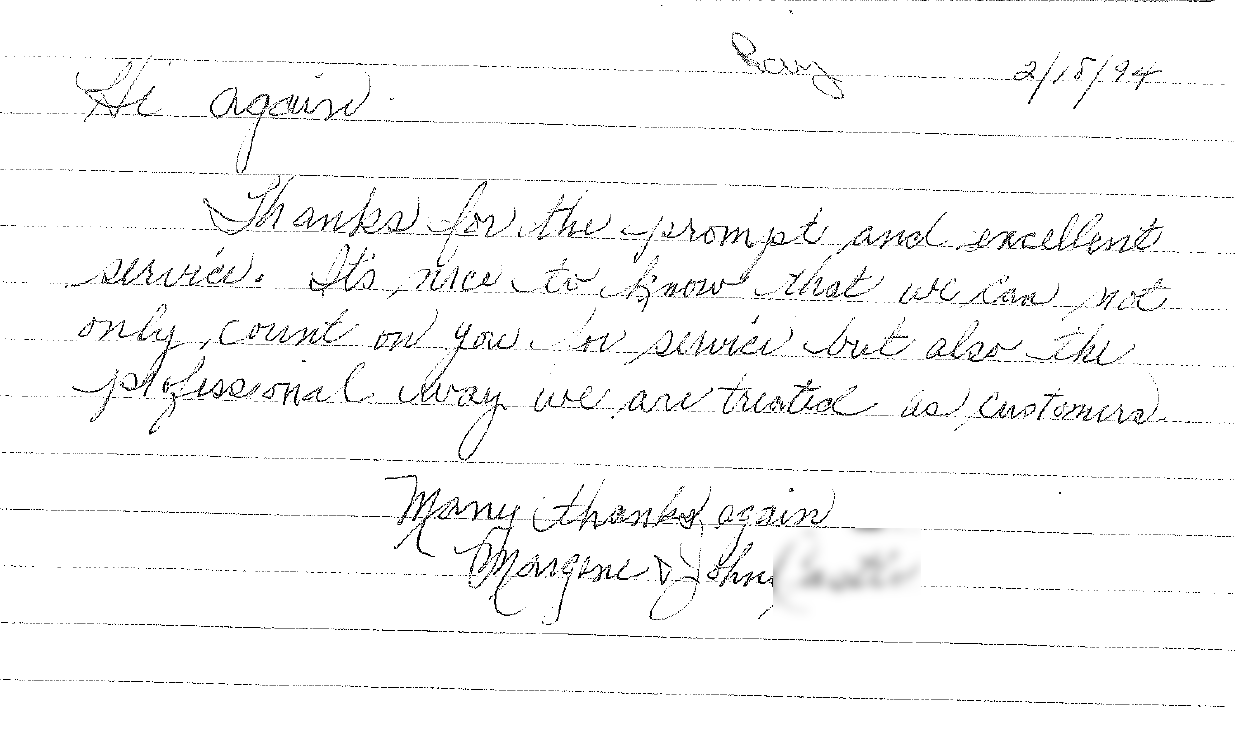 2/18/94
Hi again
Thanks for the prompt and excellent
service. It's nice to know that we can not
only count on you for service but also the
professional way we are treated as customers.
Many thanks again
Margene & John